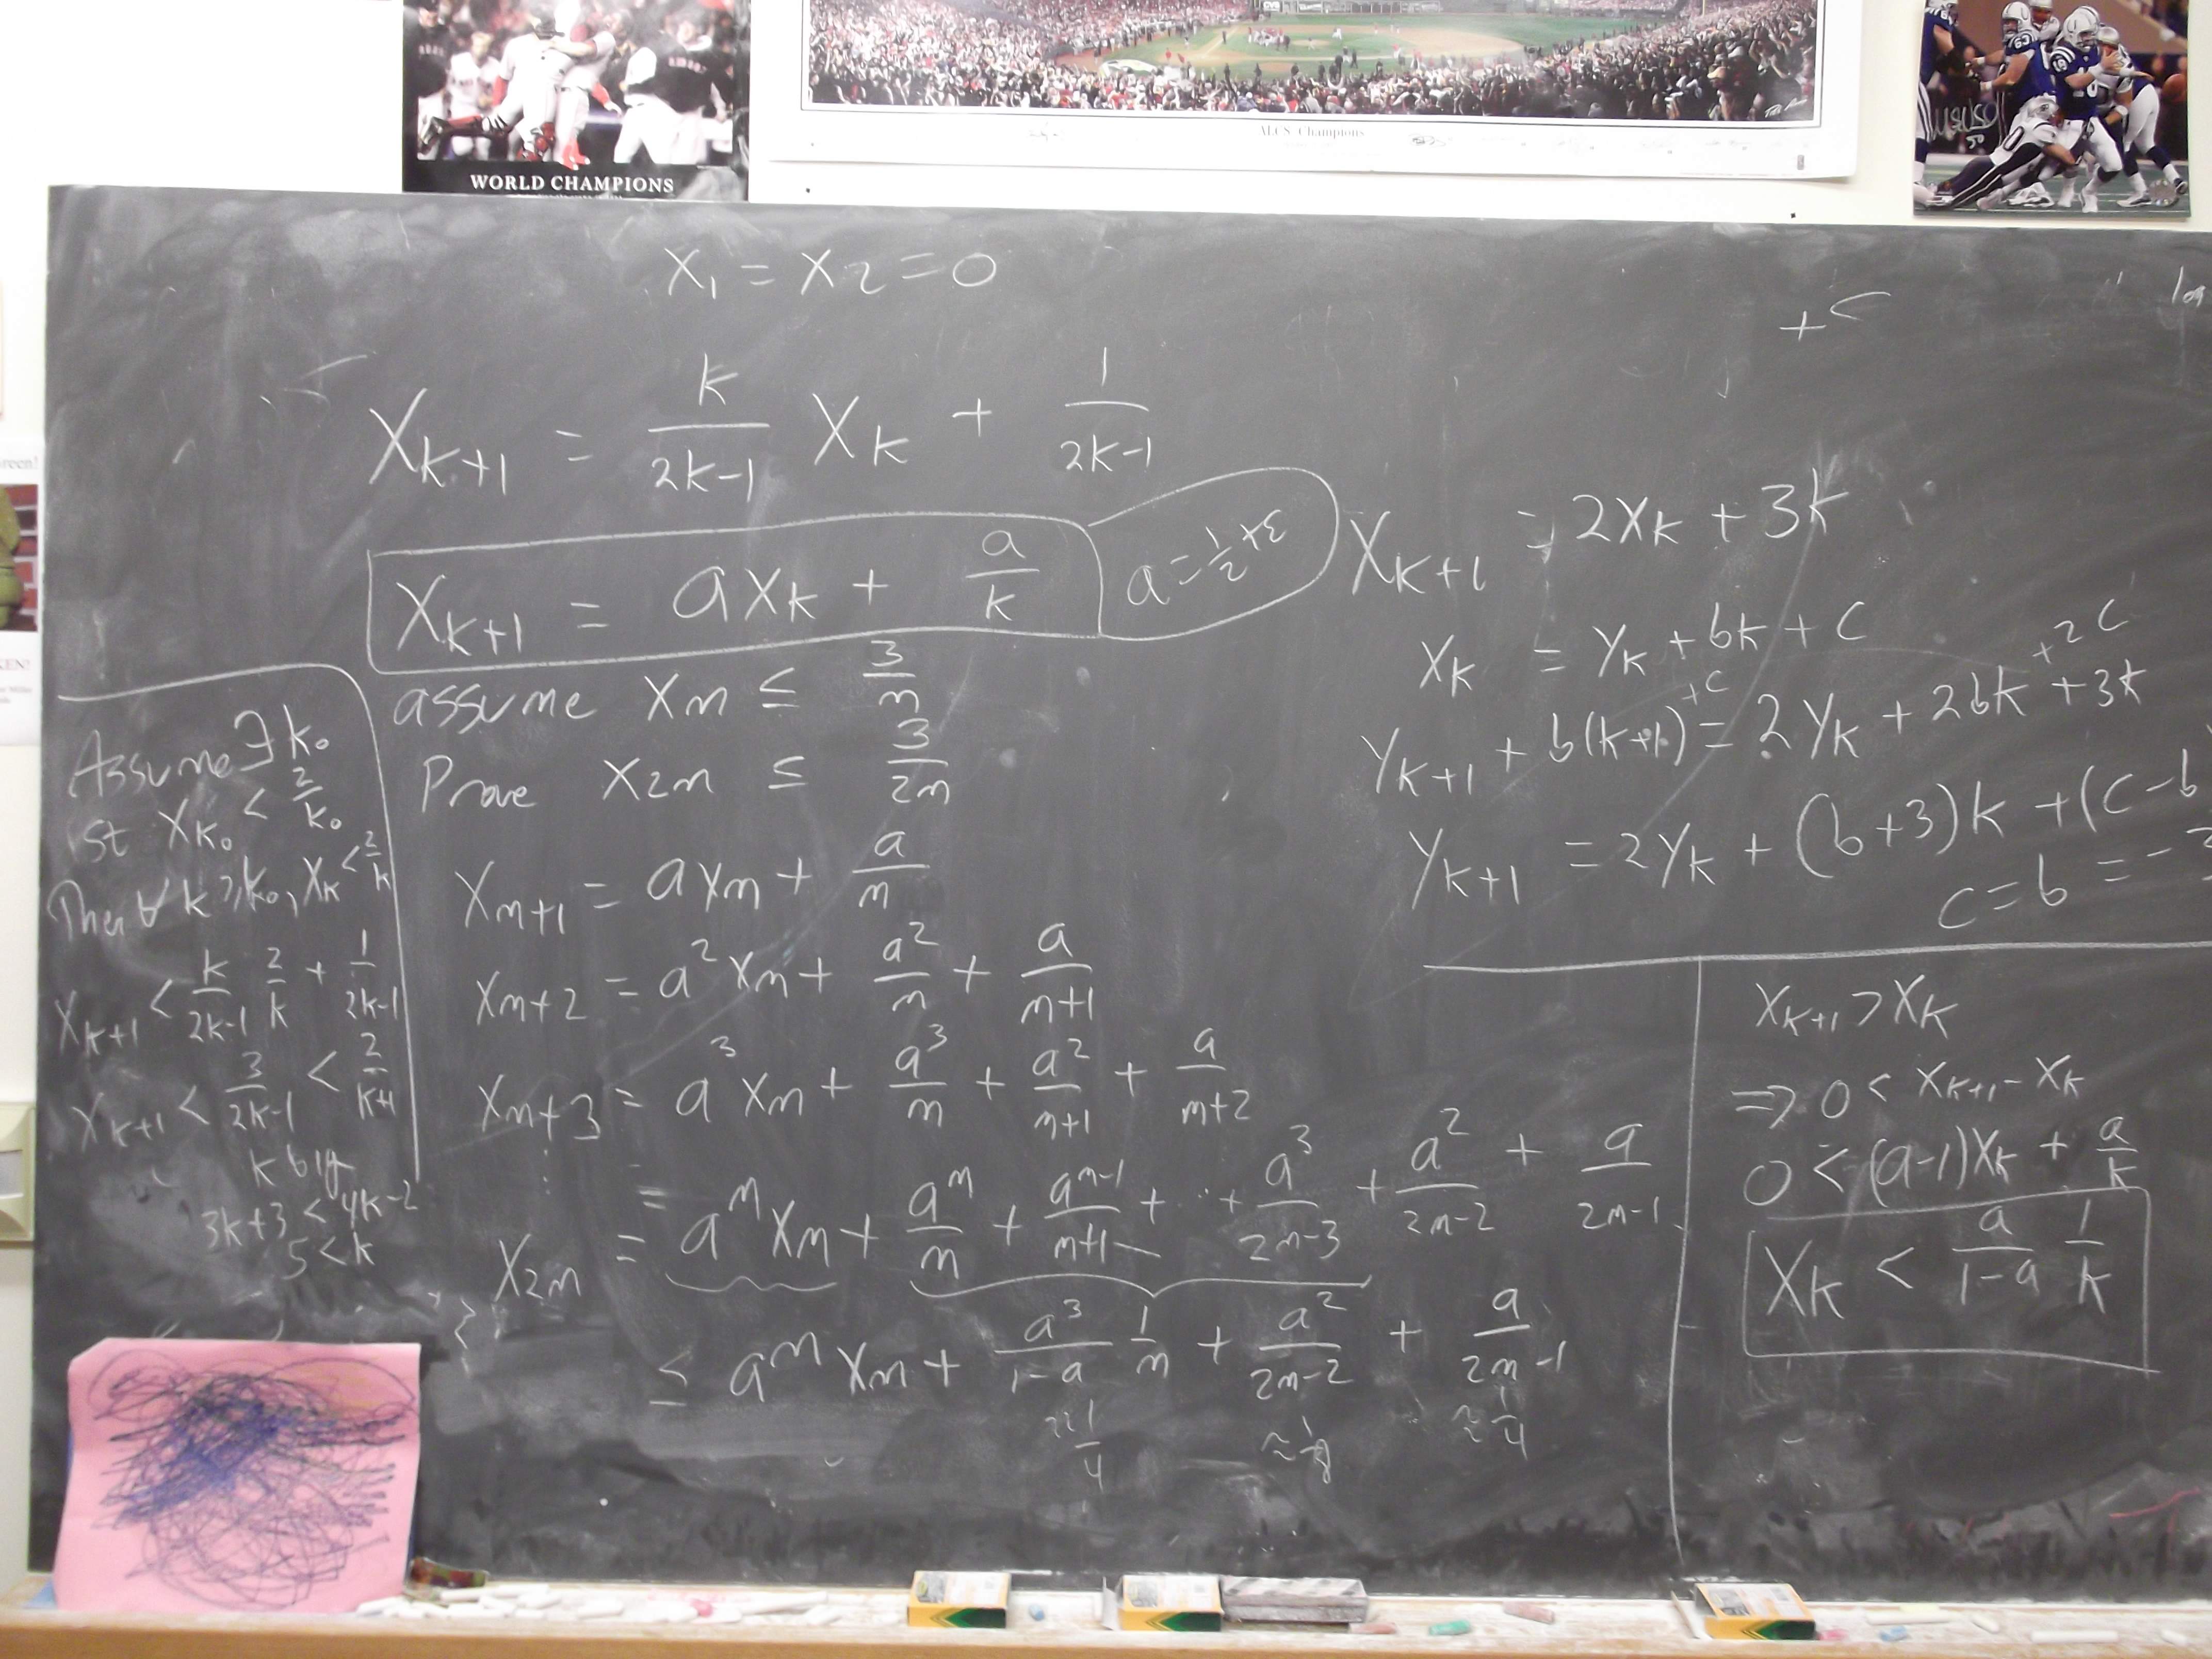 WORLD CHAMPIONS
ALCS Champions
x₁ = x₂ = 0
+c
x_{k+1} = \frac{k}{2k-1} x_k + \frac{1}{2k-1}
x_{k+1} = a x_k + \frac{a}{k}
a = \frac{1}{2} + ε
assume x_m ≤ \frac{3}{m}
Prove x_{2m} ≤ \frac{3}{2m}
x_{m+1} = a x_m + \frac{a}{m}
x_{m+2} = a² x_m + \frac{a²}{m} + \frac{a}{m+1}
x_{m+3} = a³ x_m + \frac{a³}{m} + \frac{a²}{m+1} + \frac{a}{m+2}
⋮
x_{2m} = a^m x_m + \frac{a^m}{m} + \frac{a^{m-1}}{m+1} + ⋯ + \frac{a³}{2m-3} + \frac{a²}{2m-2} + \frac{a}{2m-1}
≤ a^m x_m + \frac{a³}{1-a} \frac{1}{m} + \frac{a²}{2m-2} + \frac{a}{2m-1}
≈ \frac{1}{4} ≈ \frac{1}{8} ≈ \frac{1}{4}
Assume ∃ k₀
st x_{k₀} < \frac{2}{k₀}
Then ∀ k ≥ k₀, x_k < \frac{2}{k}
x_{k+1} < \frac{k}{2k-1} \frac{2}{k} + \frac{1}{2k-1}
x_{k+1} < \frac{3}{2k-1} < \frac{2}{k+1}
k big
3k+3 < 4k-2
5 < k
x_{k+1} = 2x_k + 3k
x_k = y_k + bk + c
y_{k+1} + b(k+1) +c = 2y_k + 2bk +2c + 3k
y_{k+1} = 2y_k + (b+3)k + (c-b
c = b = -3
x_{k+1} > x_k
⇒ 0 < x_{k+1} - x_k
0 < (a-1)x_k + \frac{a}{k}
x_k < \frac{a}{1-a} \frac{1}{k}